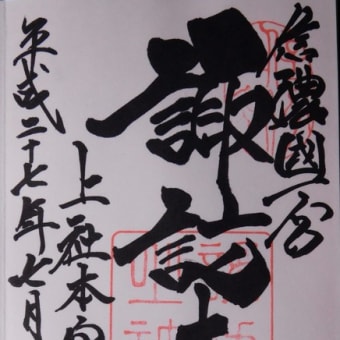 信濃國一宮
諏訪大
上社本宮
平成二十七年七月